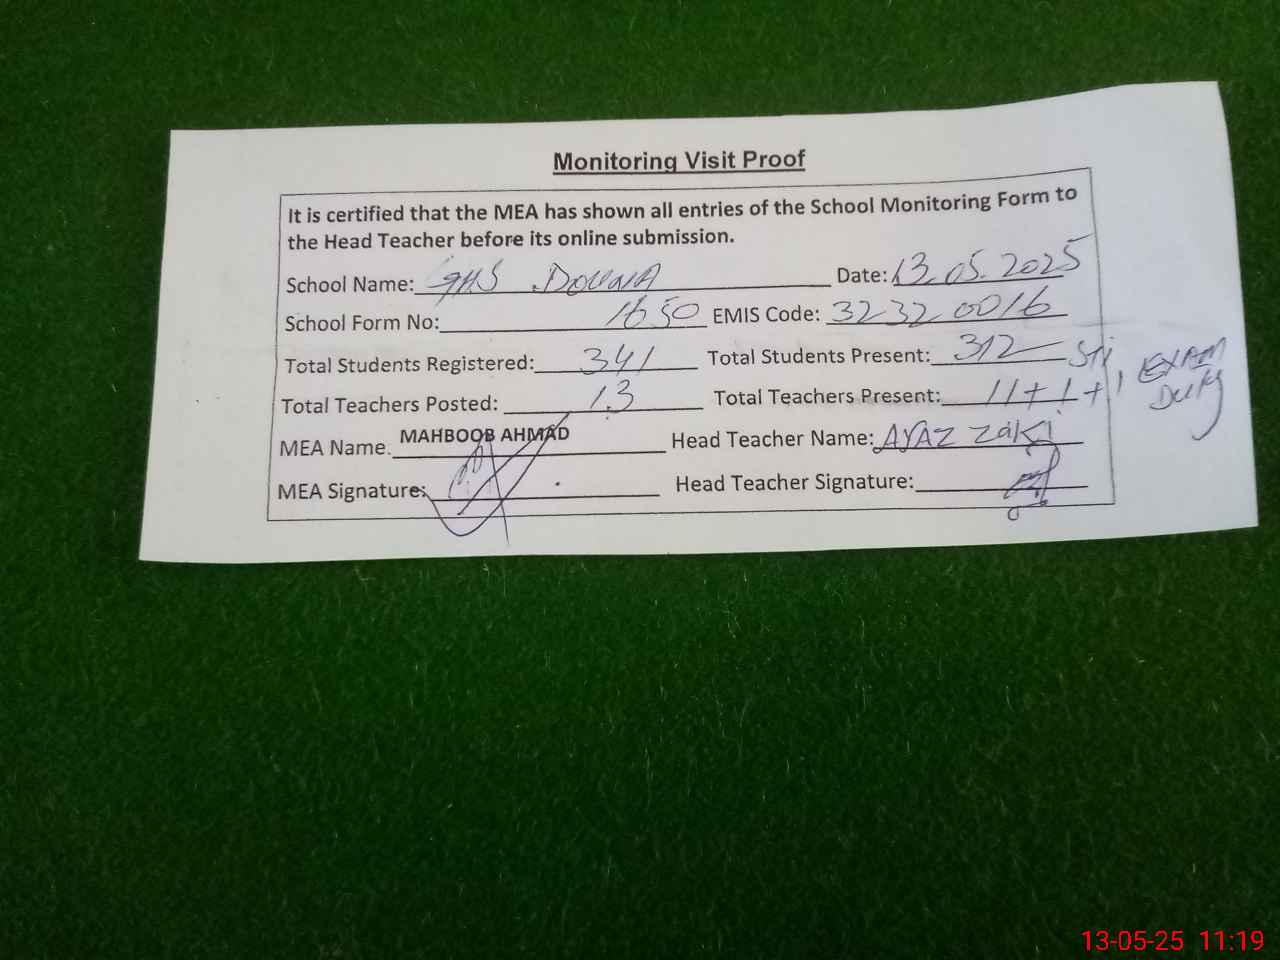 Monitoring Visit Proof
It is certified that the MEA has shown all entries of the School Monitoring Form to
the Head Teacher before its online submission.
School Name: GHS DOUNA Date: 13.05.2025
School Form No: 1650 EMIS Code: 32320016
Total Students Registered: 341 Total Students Present: 312
Total Teachers Posted: 13 Total Teachers Present: 11+1+1 EXAM
Duty
MEA Name: MAHBOOB AHMAD Head Teacher Name: AYAZ Zaki
MEA Signature: Head Teacher Signature:
13-05-25 11:19